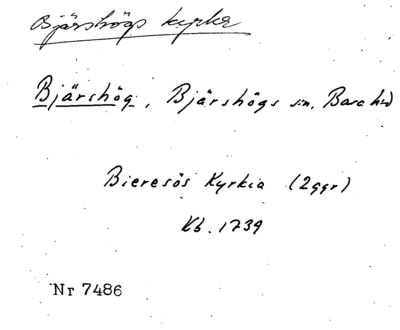 Bjärshögs kyrka
Bjärshög, Bjärshögs sn, Bara hd
Bieresös Kyrkia (2ggr)
Kb. 1739
Nr 7486